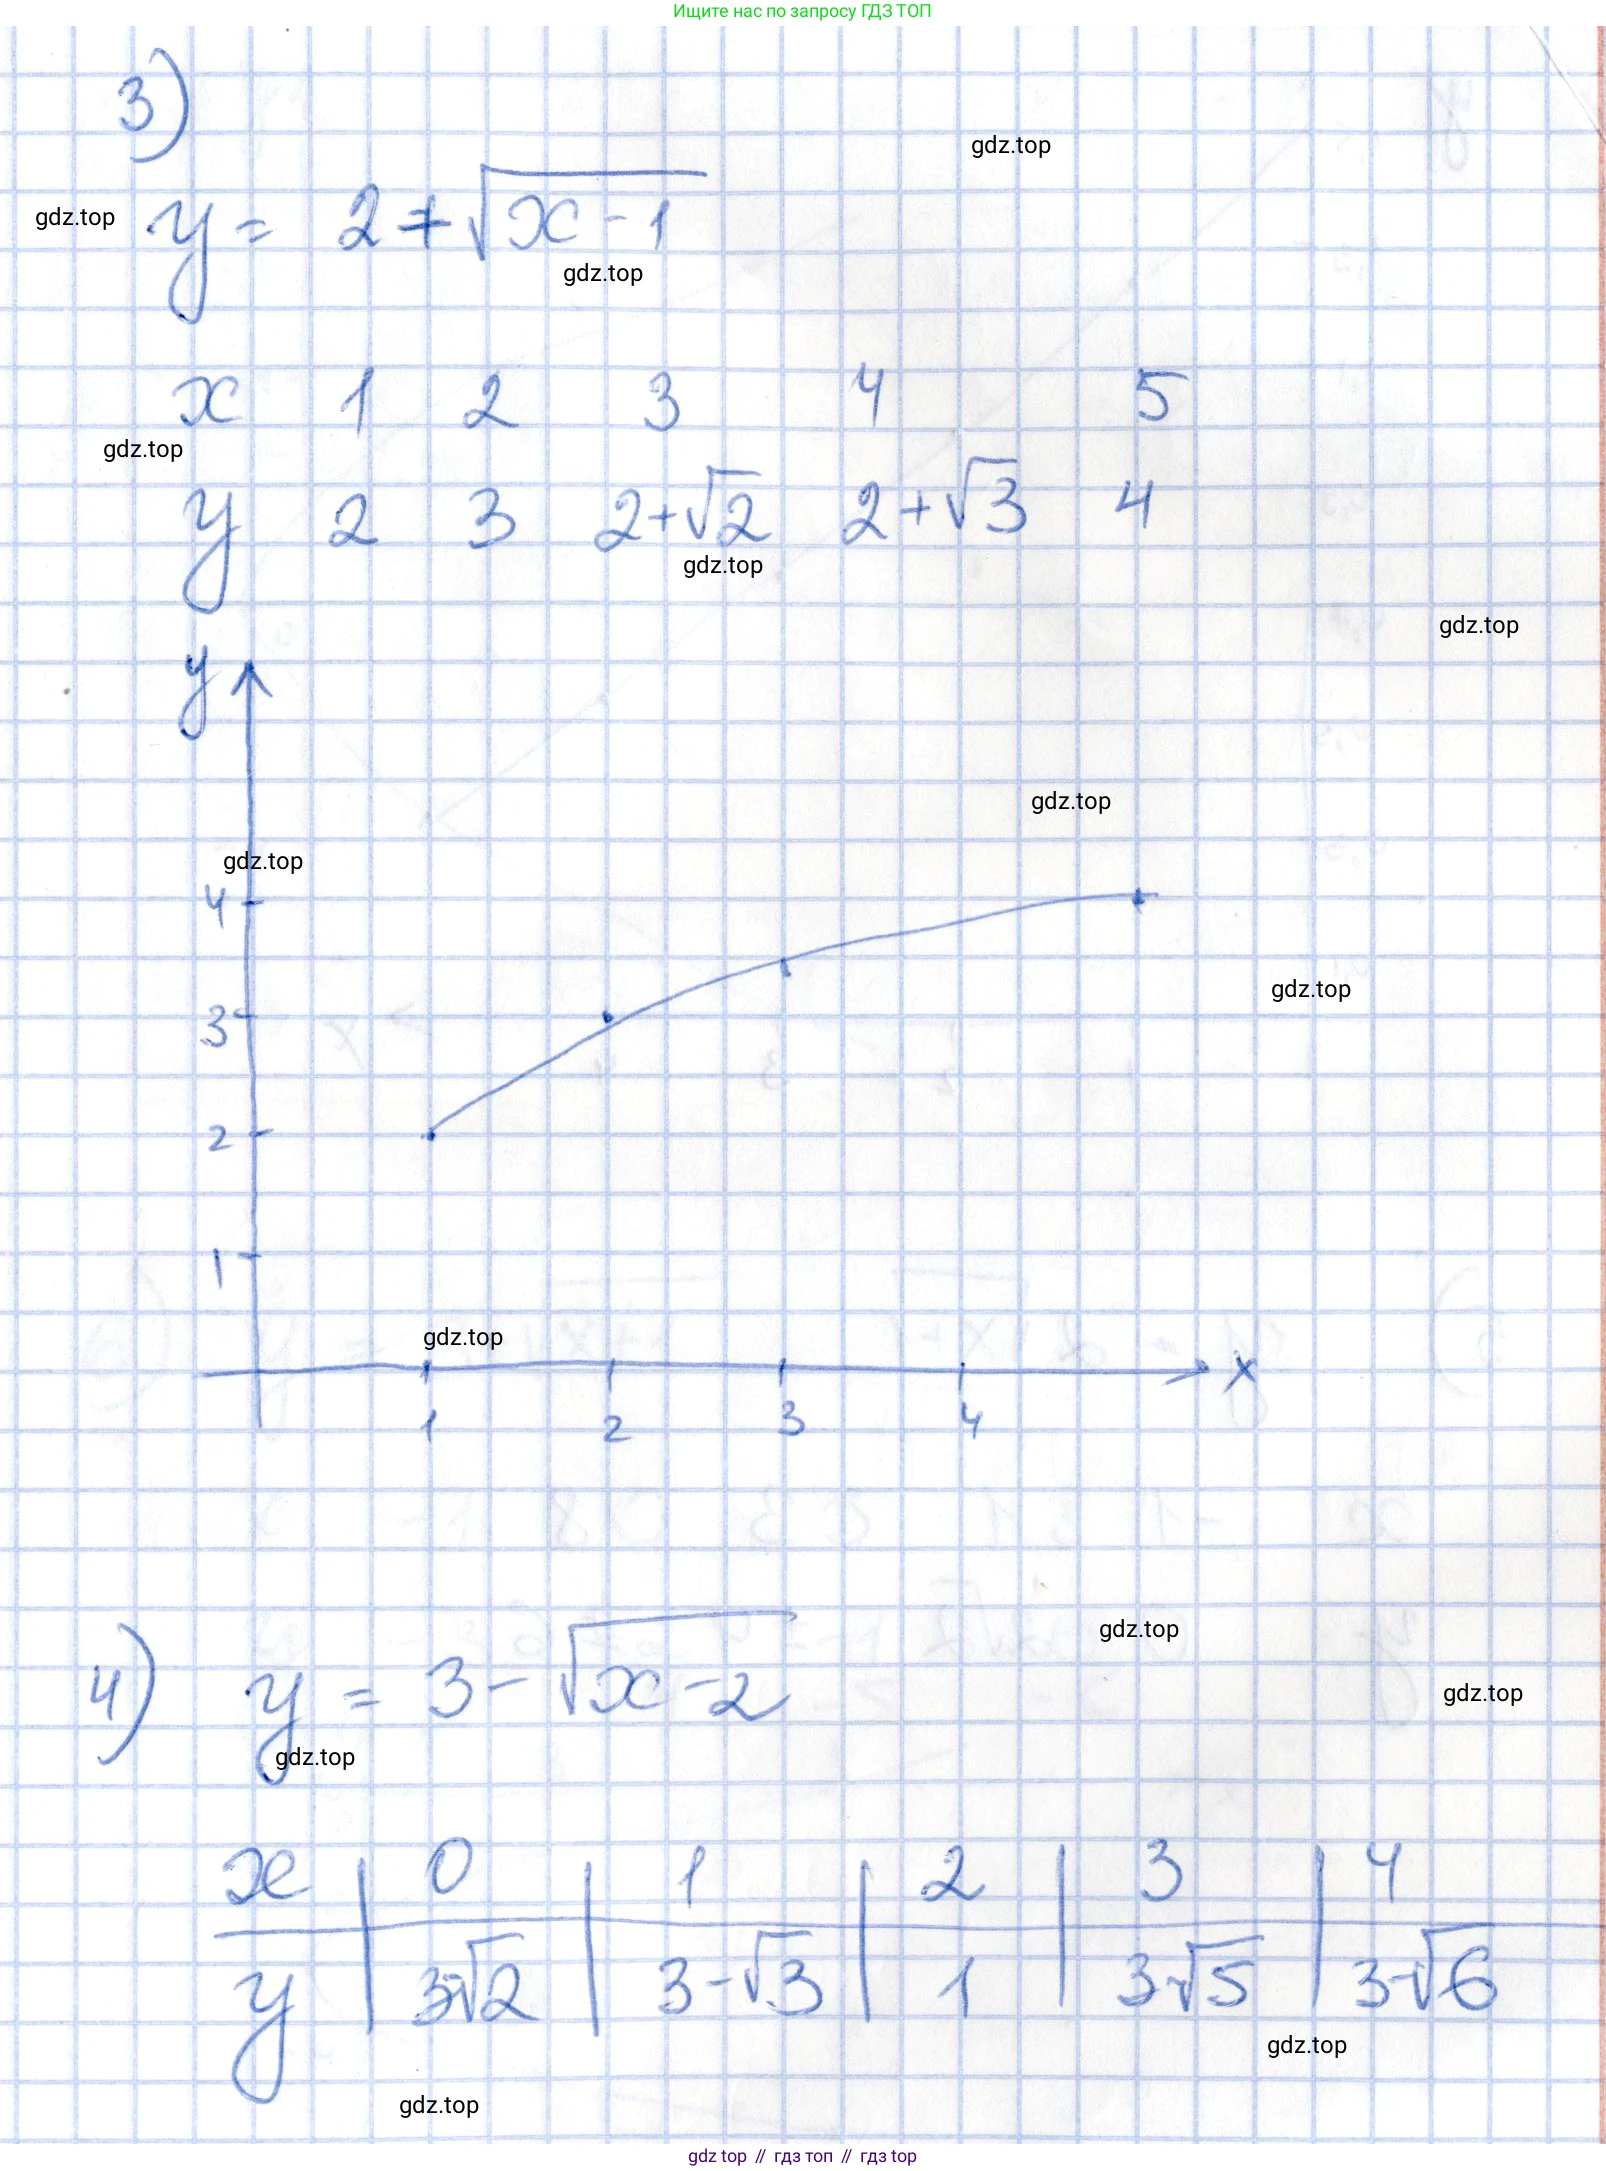 Ищите нас по запросу ГДЗ ТОП
3)
gdz.top
gdz.top y = 2 + √x - 1
gdz.top
x 1 2 3 4 5
gdz.top
y 2 3 2+√2 2+√3 4
gdz.top
gdz.top
y
gdz.top
gdz.top
4
gdz.top
3
2
1
gdz.top
x
1 2 3 4
gdz.top
4) y = 3 - √x - 2
gdz.top
gdz.top
x 0 1 2 3 4
y 3-√2 3-√3 1 3-√5 3-√6
gdz.top
gdz.top
gdz top // гдз топ // гдз top